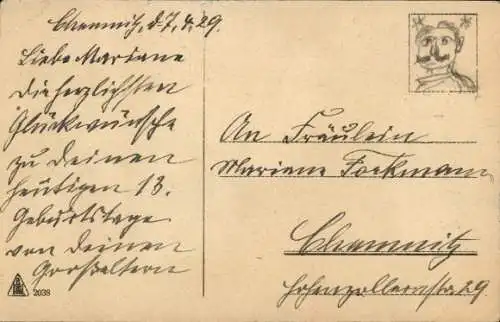 Chemnitz, d. 7.4.29.
Liebe Mariane
Die herzlichsten
Glückwünsche
zu Deinem
heutigen 13.
Geburtstage
von Deinen
Großeltern
2038
An Fräulein
Mariane Fockmann
Chemnitz
Hohenzollernstr. 29.